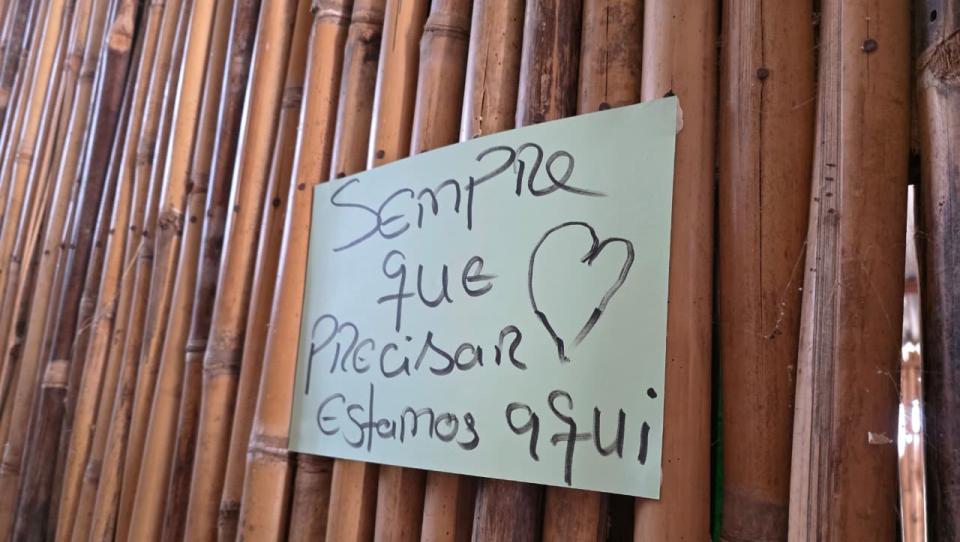 SEMPRE
QUE
PRECISAR
ESTAMOS AQUI